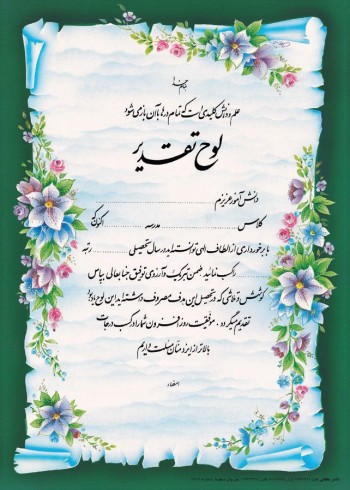 بنام خدا
علم و دانش کلیدی است که تمام درها با آن باز می شود
لوح تقدیر
دانش آموز عزیزم
کلاس مدرسه اکنون که
با برخورداری از الطاف الهی توانسته اید در سال تحصیلی رتبه
را کسب نمائید ضمن تبریک و آرزوی توفیق جنابعالی بپاس
کوشش و تلاشی که در تحصیل این هدف مصروف داشته اید این لوح یادبود
تقدیم میگردد. موفقیت روز افزون شما را در کسب درجات
بالاتر از ایزد منان مسئلت داریم
امضاء